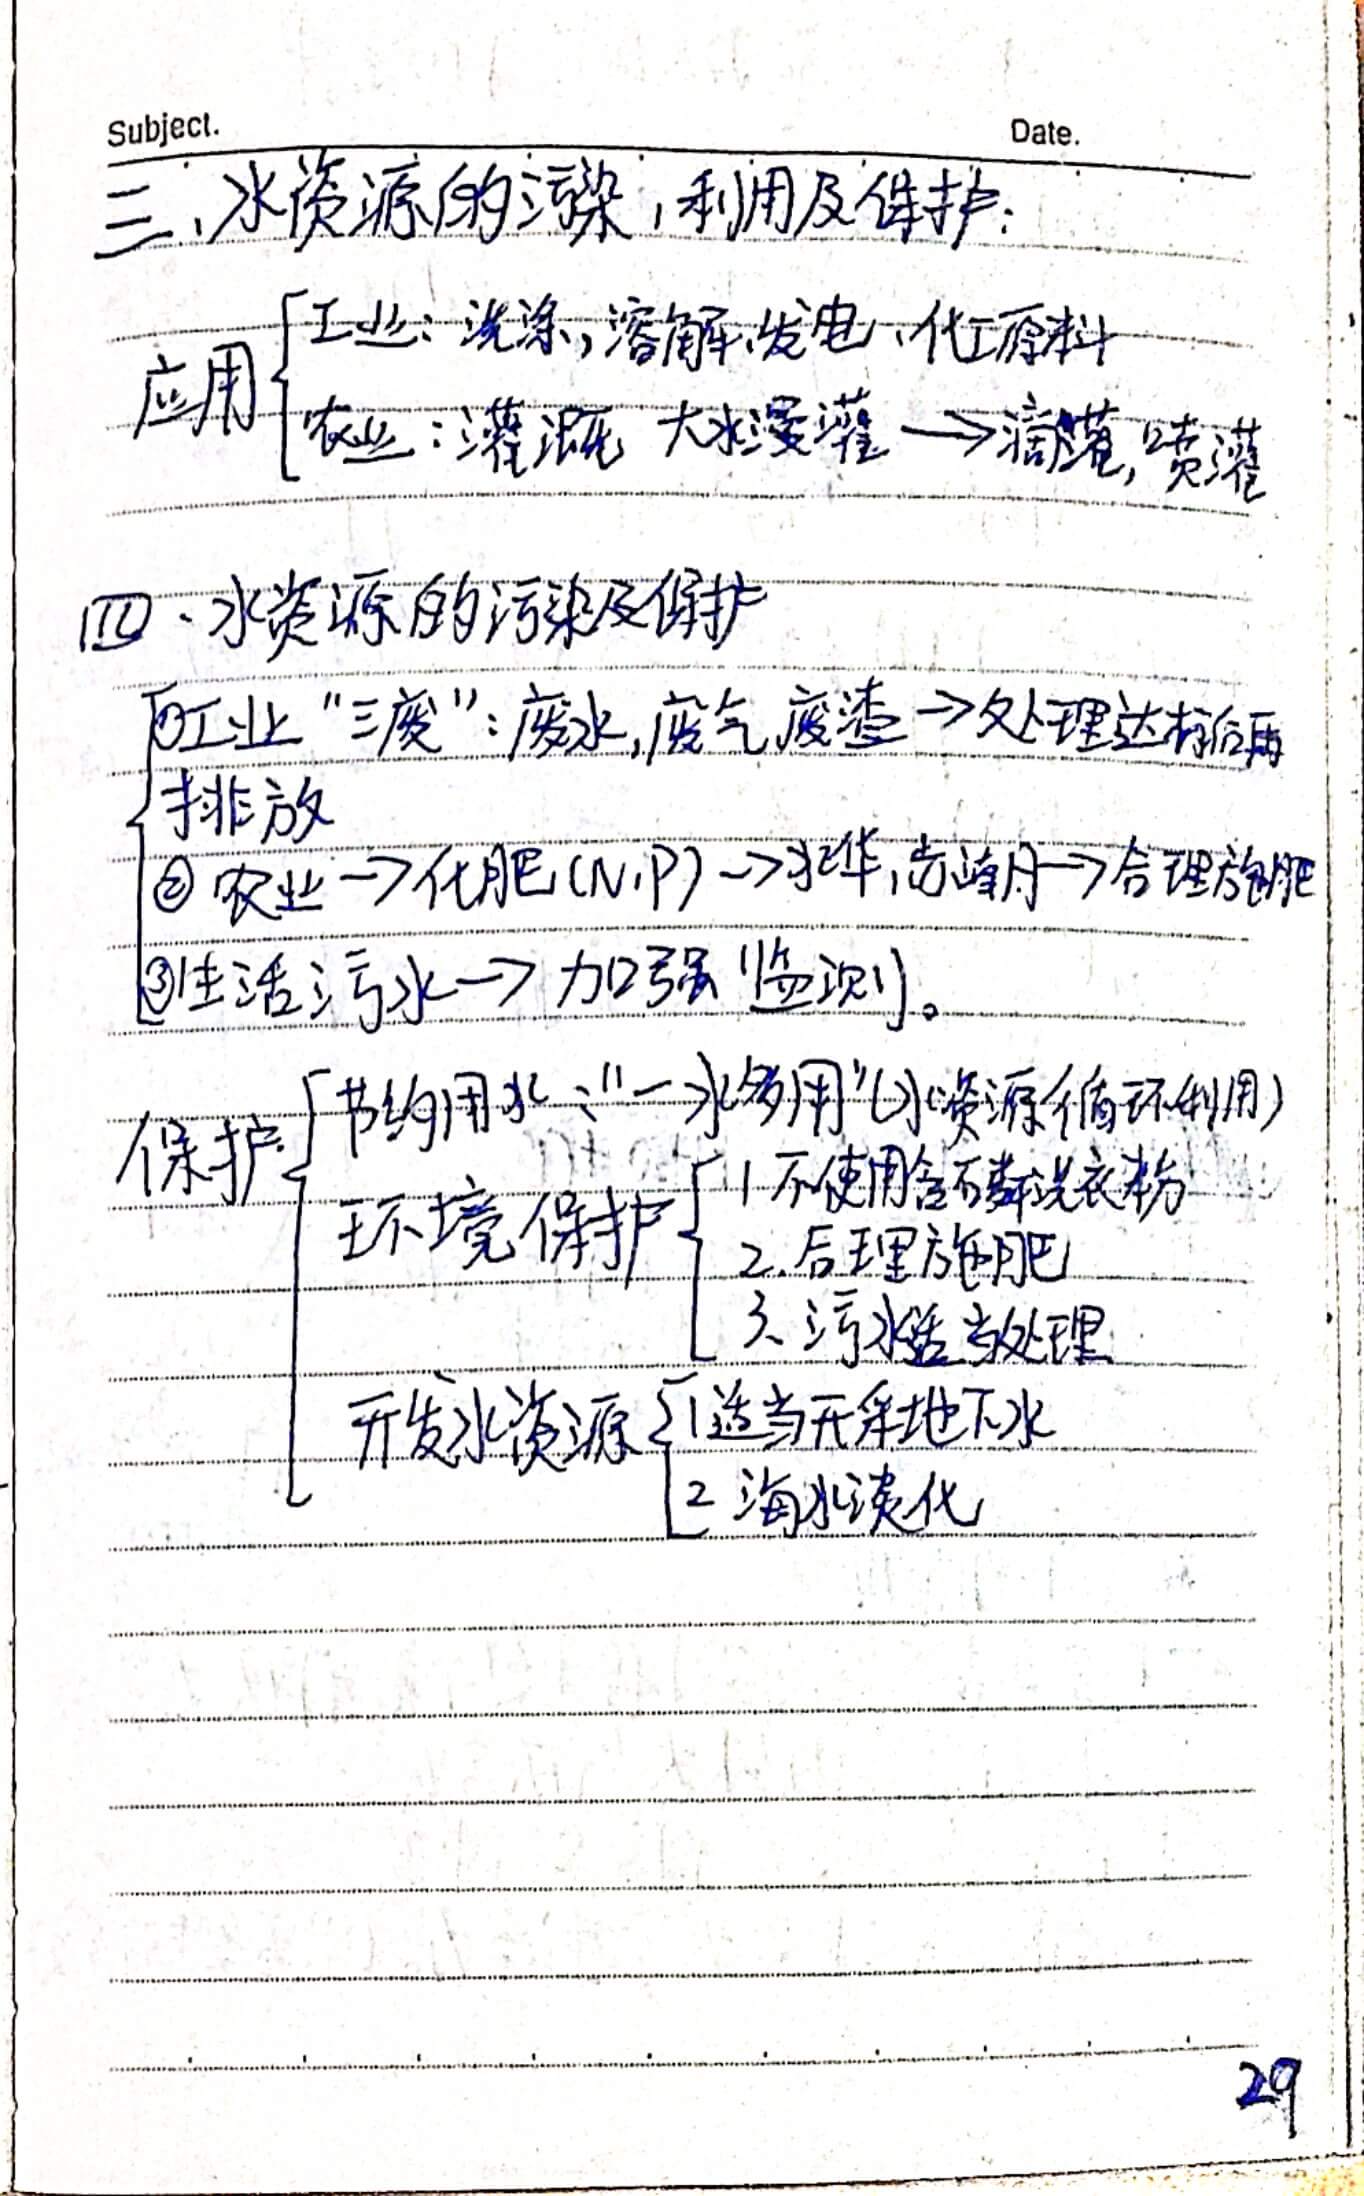 Subject.
Date.
三、水资源的污染,利用及保护:
应用
工业:洗涤,溶解、发电、化工原料
农业:灌溉 大水漫灌→滴灌,喷灌
四、水资源的污染及保护
①工业"三废":废水,废气,废渣→处理达标后再
排放
②农业→化肥(N、P)→水华、赤潮→合理施肥
③生活污水→加强监测。
保护
节约用水:"一水多用"(水资源循环利用)
环境保护
1不使用含磷洗衣粉
2.合理施肥
3、污水适当处理
开发水资源
1适当开采地下水
2 海水淡化
29